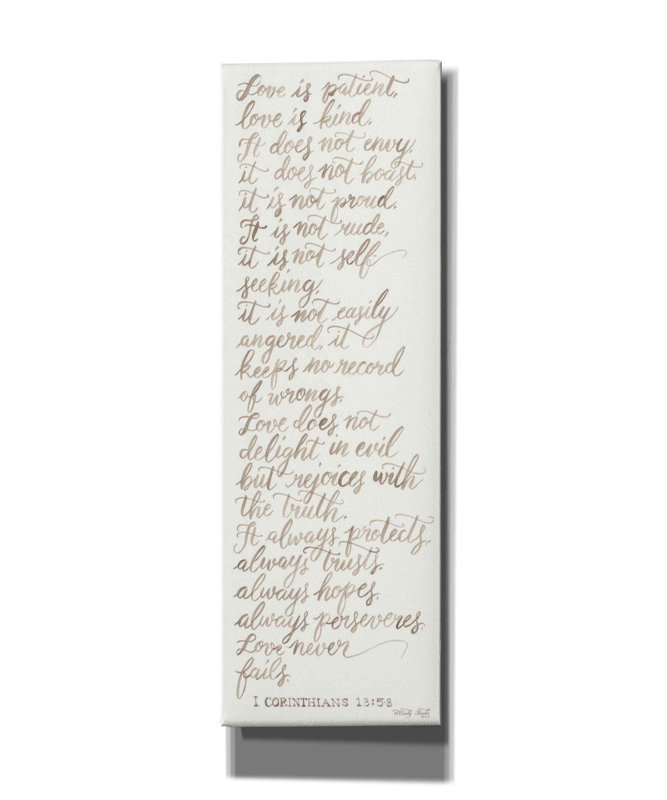 Love is patient,
love is kind.
It does not envy,
it does not boast,
it is not proud.
It is not rude,
it is not self-
seeking,
it is not easily
angered, it
keeps no record
of wrongs.
Love does not
delight in evil
but rejoices with
the truth.
It always protects,
always trusts,
always hopes,
always perseveres.
Love never
fails.
1 CORINTHIANS 13:5-8